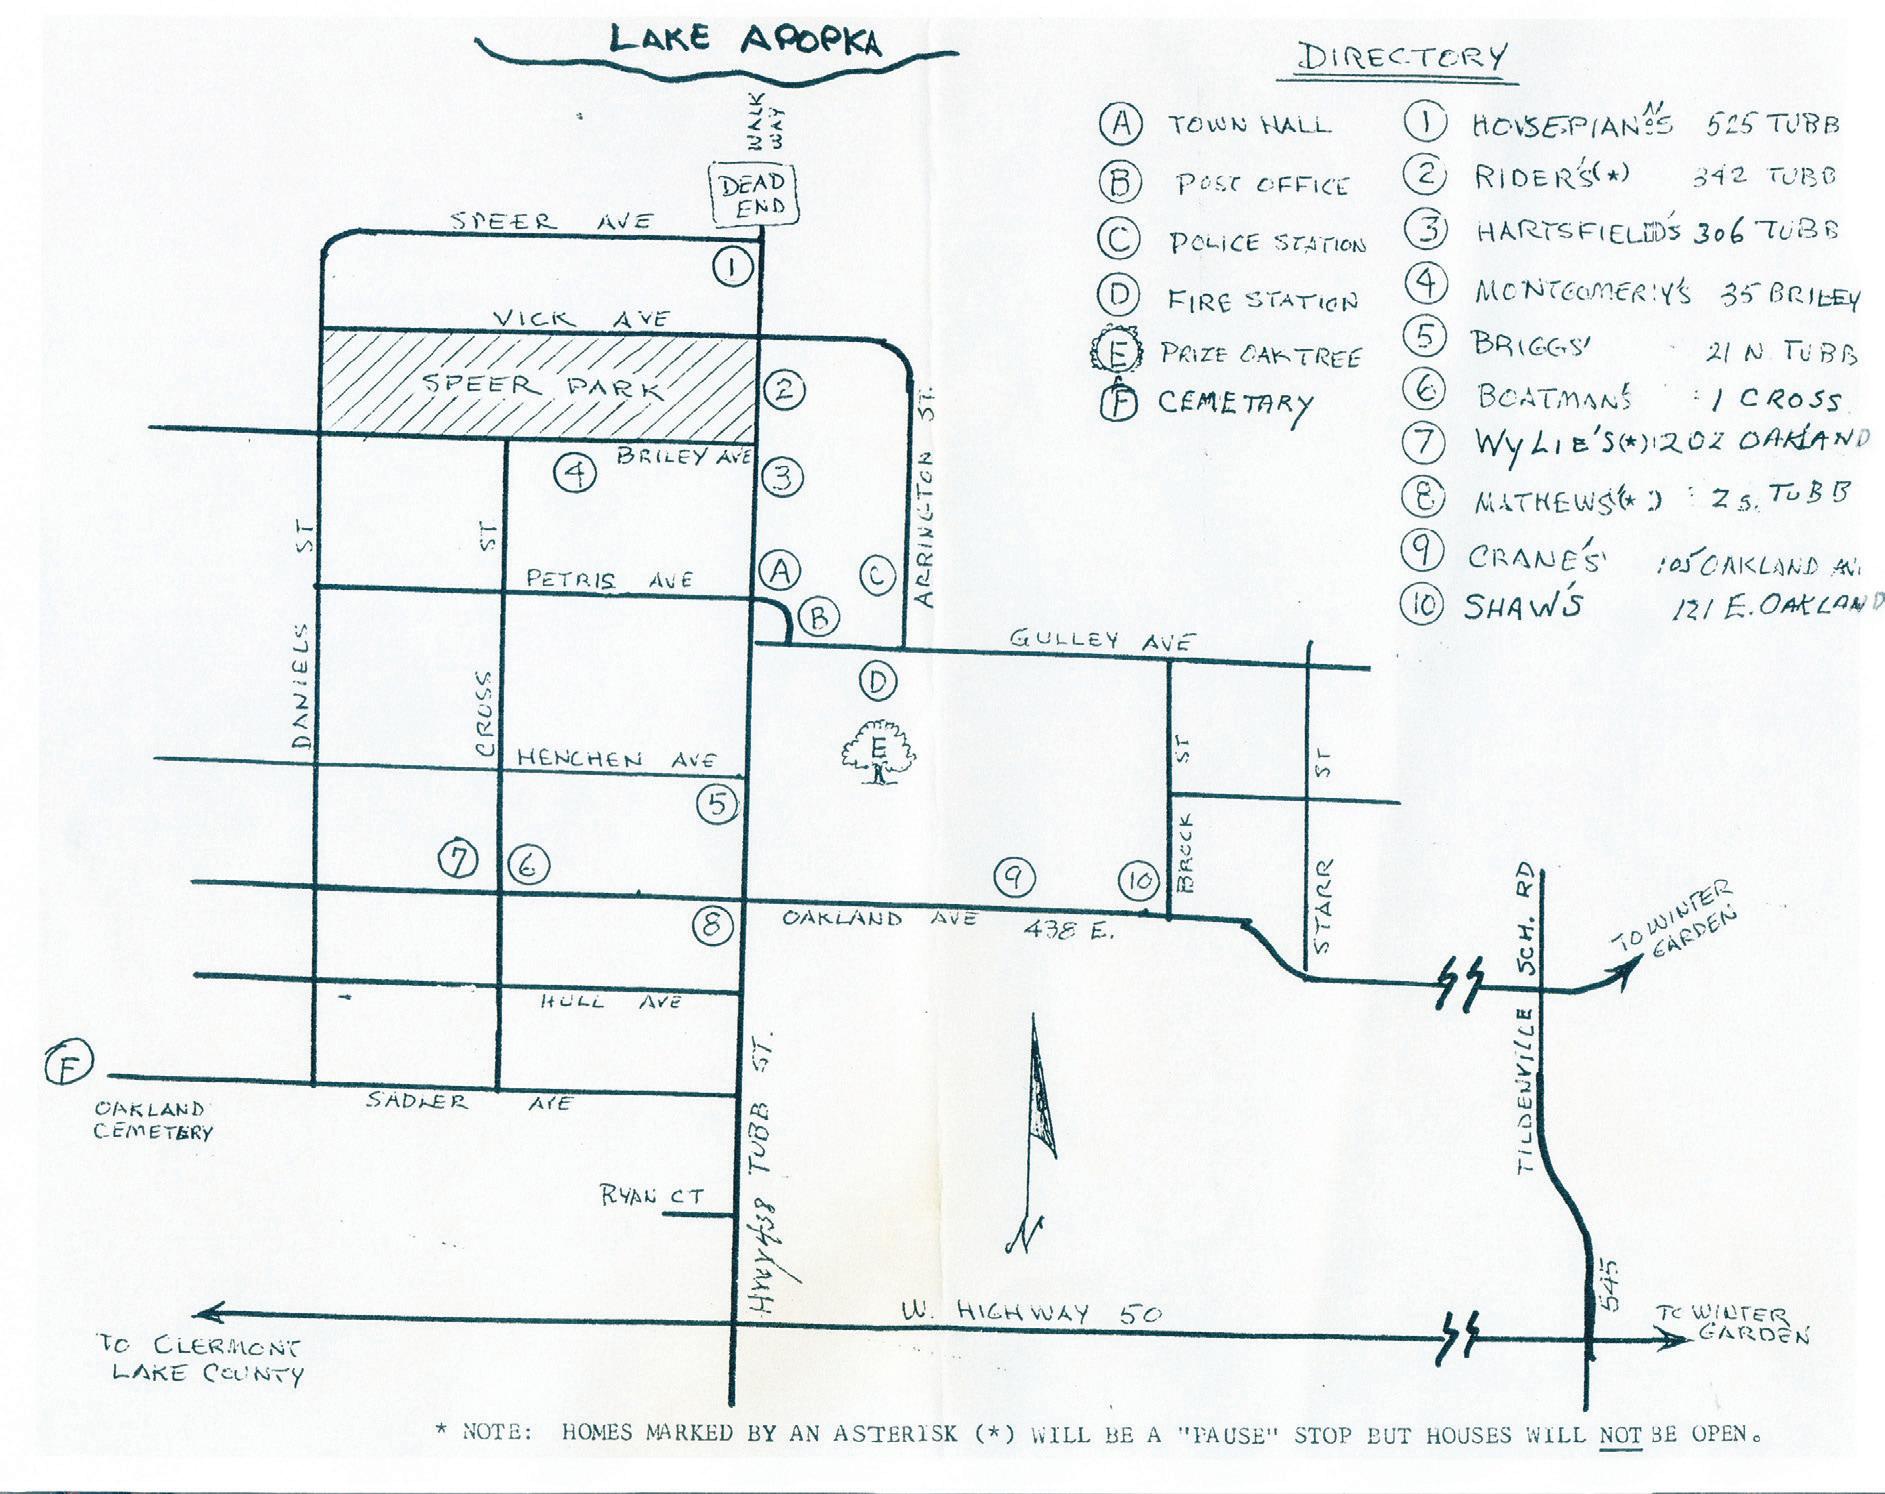 LAKE APOPKA
WALK
WAY
DEAD
END
SPEER AVE
1
VICK AVE
SPEER PARK
2
BRILEY AVE
4
3
ARRINGTON ST.
DANIELS ST
CROSS ST
PETRIS AVE
A
C
B
GULLEY AVE
D
E
HENCHEN AVE
5
7
6
9
10
BROCK ST
STARR ST
8
OAKLAND AVE
438 E.
HULL AVE
F
OAKLAND
CEMETERY
SADLER AVE
RYAN CT
HWY 438 TUBB ST.
N
TILDENVILLE SCH. RD
TO WINTER
GARDEN
545
W. HIGHWAY 50
TO CLERMONT
LAKE COUNTY
TO WINTER
GARDEN
DIRECTORY
A TOWN HALL
B POST OFFICE
C POLICE STATION
D FIRE STATION
E PRIZE OAK TREE
F CEMETARY
1 525 TUBB
2 RIDER'S(*) 342 TUBB
3 HARTSFIELD'S 306 TUBB
4 MONTGOMERY'S 35 BRILEY
5 BRIGGS' 21 N. TUBB
6 BOATMAN'S 1 CROSS
7 WYLIE'S(*) 202 OAKLAND
8 MATHEWS'(*) 2 S. TUBB
9 CRANE'S 105 OAKLAND AV
10 SHAW'S 121 E. OAKLAND
* NOTE: HOMES MARKED BY AN ASTERISK (*) WILL BE A "PAUSE" STOP BUT HOUSES WILL NOT BE OPEN.